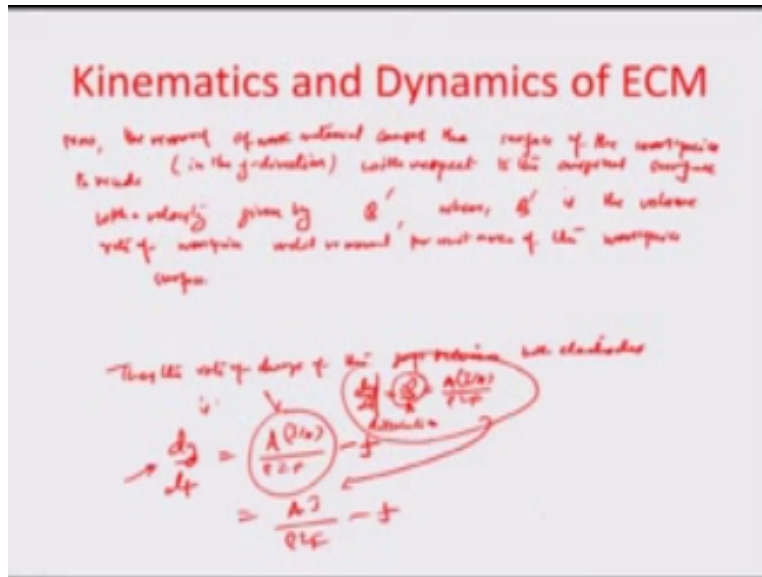 Kinematics and Dynamics of ECM
Now, the removal of work material causes the surface of the workpiece
to recede (in the y-direction) with respect to the original surface
with a velocity given by Q', where, Q' is the volume
rate of workpiece metal removal per unit area of the workpiece
surface.
Then the rate of change of the gap between two electrodes
is
dy/dt = Q/A = A(I/A)/ρZF
dissolution
dy/dt = A(I/A)/ρZF - f
= AJ/ρZF - f